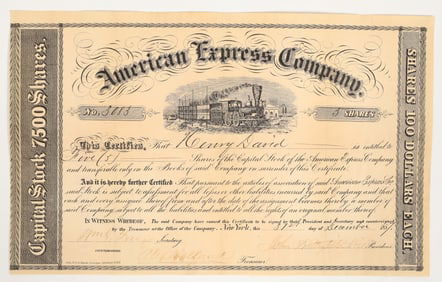 American Express Company.
Capital Stock 7500 Shares.
No. 3013
5 SHARES
SHARES 100 DOLLARS EACH.
This Certifies, That Henry David is entitled to
Five (5) Shares of the Capital Stock of the American Express Company
and transferable only on the Books of said Company on surrender of this Certificate.
And it is hereby further Certified That pursuant to the articles of association of said American Express Co
said Stock is subject to assessment for all losses or other liabilities incurred by said Company and that
each and every assignee thereof from and after the date of the assignment becomes thereby a member of
said Company, subject to all the liabilities and entitled to all the rights of an original member thereof.
In Witness Whereof, The said Company have caused this Certificate to be signed by their President and Secretary and countersigned
by the Treasurer at the Office of the Company, New York, this day of December
Secretary
President
Treasurer